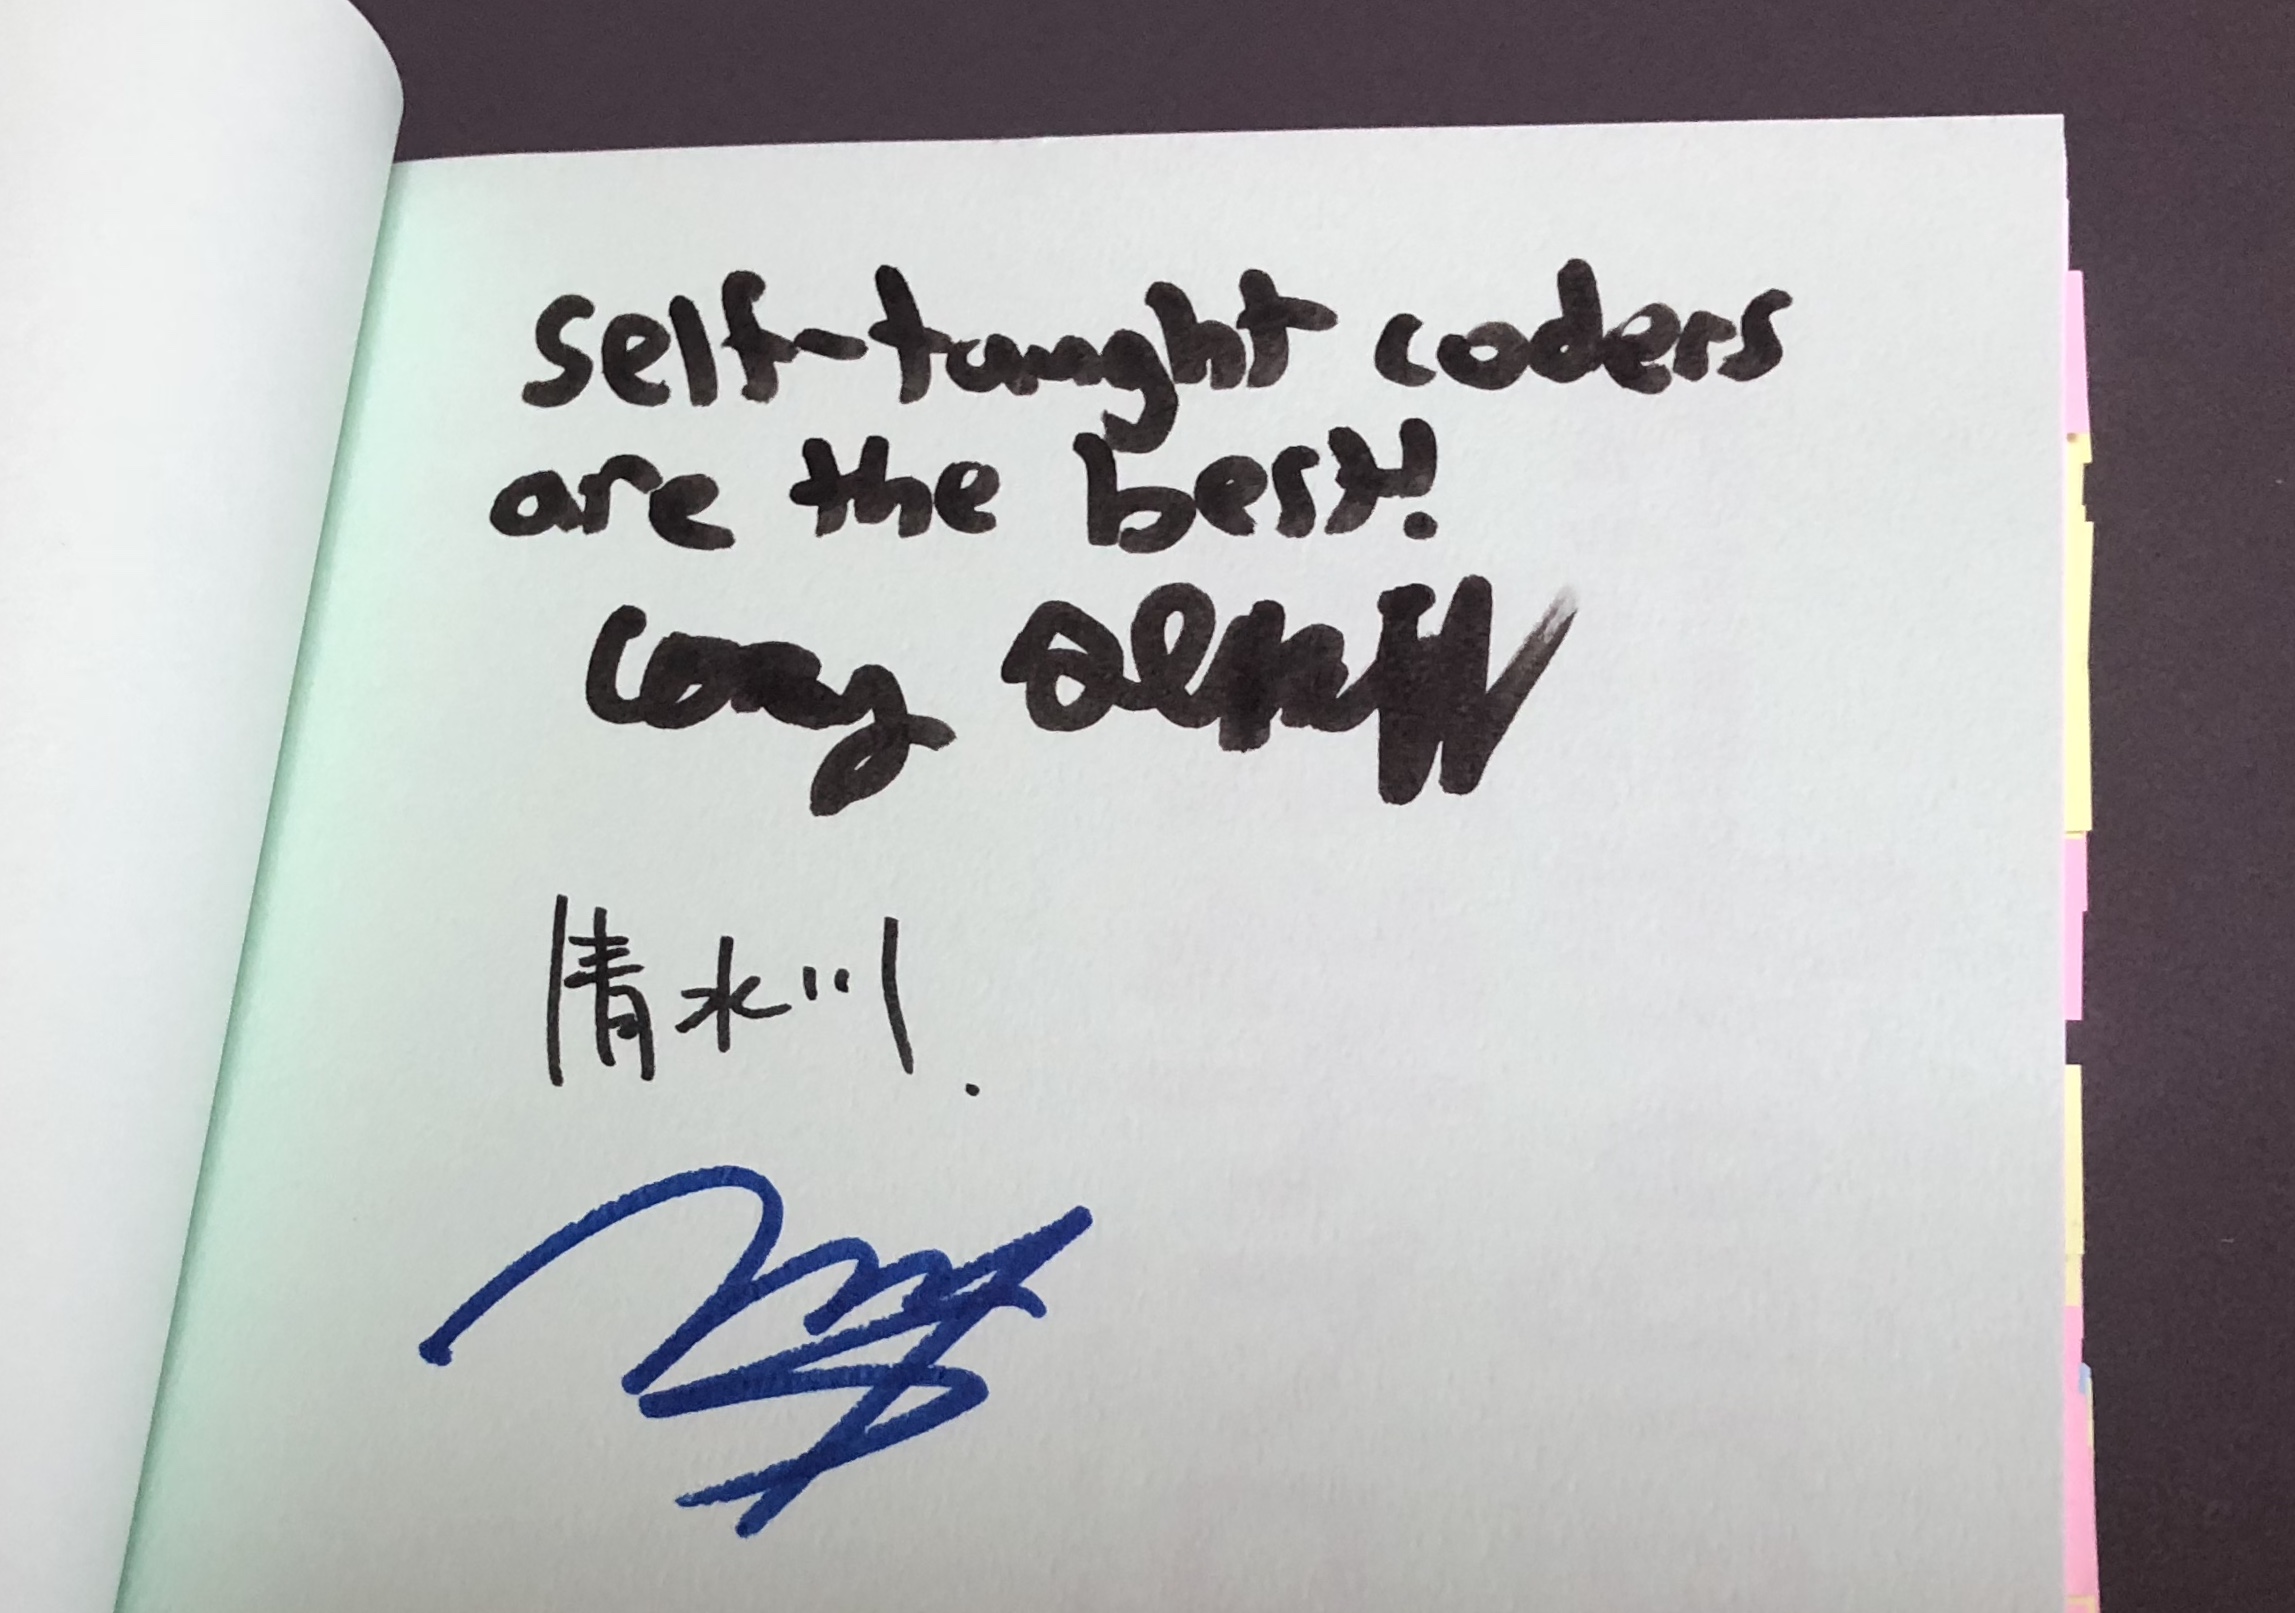 self-taught coders
are the best!
Cory
清水川